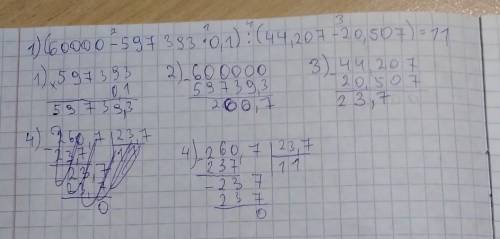 2 1 4 3
1) (60000 - 597 393 · 0,1) : (44,207 - 20,507) = 11
1) × 597393
0 1
59739,3
2) - 600000
59739,3
260,7
3) - 44,207
20,507
23,7
4) - 260,7 | 23,7
237
- 23,7
23,7
0
4) - 260,7 | 23,7
237 | 11
- 237
237
0